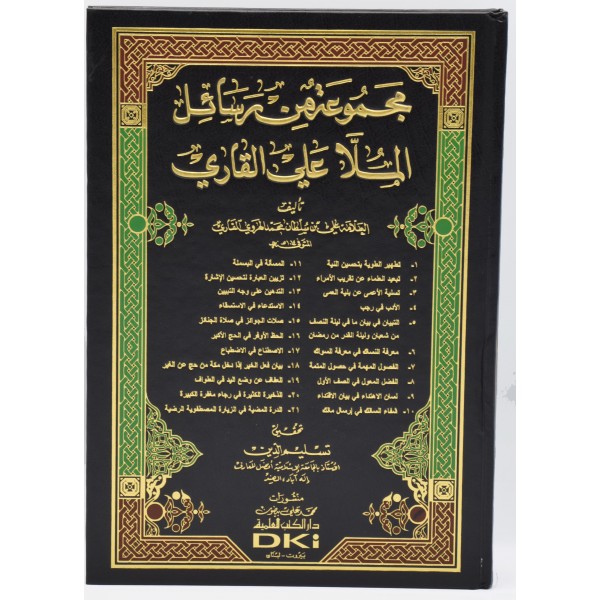 مجموعة من رسائل
الملا علي القاري
تأليف
العلامة علي بن سلطان محمد الهروي القاري
المتوفى ١٠١٤ هـ
١- تطهير الطوية بتحسين النية
٢- تبعيد العلماء عن تقريب الأمراء
٣- تسلية الأعمى عن بلية العمى
٤- الأدب في رجب
٥- التبيان في بيان ما في ليلة النصف
من شعبان وليلة القدر من رمضان
٦- معرفة النساك في معرفة السواك
٧- الفصول المهمة في حصول المتمة
٨- الفضل المعول في الصف الأول
٩- لسان الاهتداء في بيان الاقتداء
١٠- شفاء السالك في إرسال مالك
١١- المسألة في البسملة
١٢- تزيين العبارة لتحسين الإشارة
١٣- التدهين على وجه التبيين
١٤- الاستدعاء في الاستسقاء
١٥- صلات الجوائز في صلاة الجنائز
١٦- الحظ الأوفر في الحج الأكبر
١٧- الاصطناع في الاضطباع
١٨- بيان فعل الخير إذا دخل مكة من حج عن الغير
١٩- العفاف عن وضع اليد في الطواف
٢٠- الذخيرة الكثيرة في رجاء مغفرة الكبيرة
٢١- الدرة المضية في الزيارة المصطفوية الرضية
تحقيق
تسليم الدين
الأستاذ بالجامعة الإسلامية أفضل المعارف
إله آباد، الهند
منشورات
محمد علي بيضون
دار الكتب العلمية
DKi
بيروت - لبنان